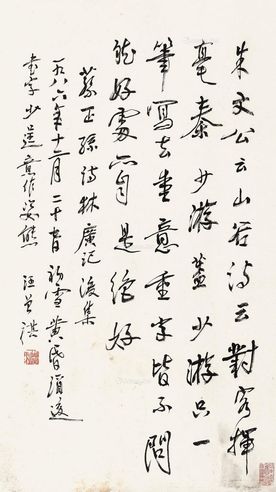 朱文公云山谷詩云對客揮
毫秦少游蓋少游只一
筆寫去重意重字皆不問
然好處亦自是絕好
蔡正孫詩林廣記後集
一九八六年十二月二十日初雪黃昏
書字少逞意作姿態 汪曾祺